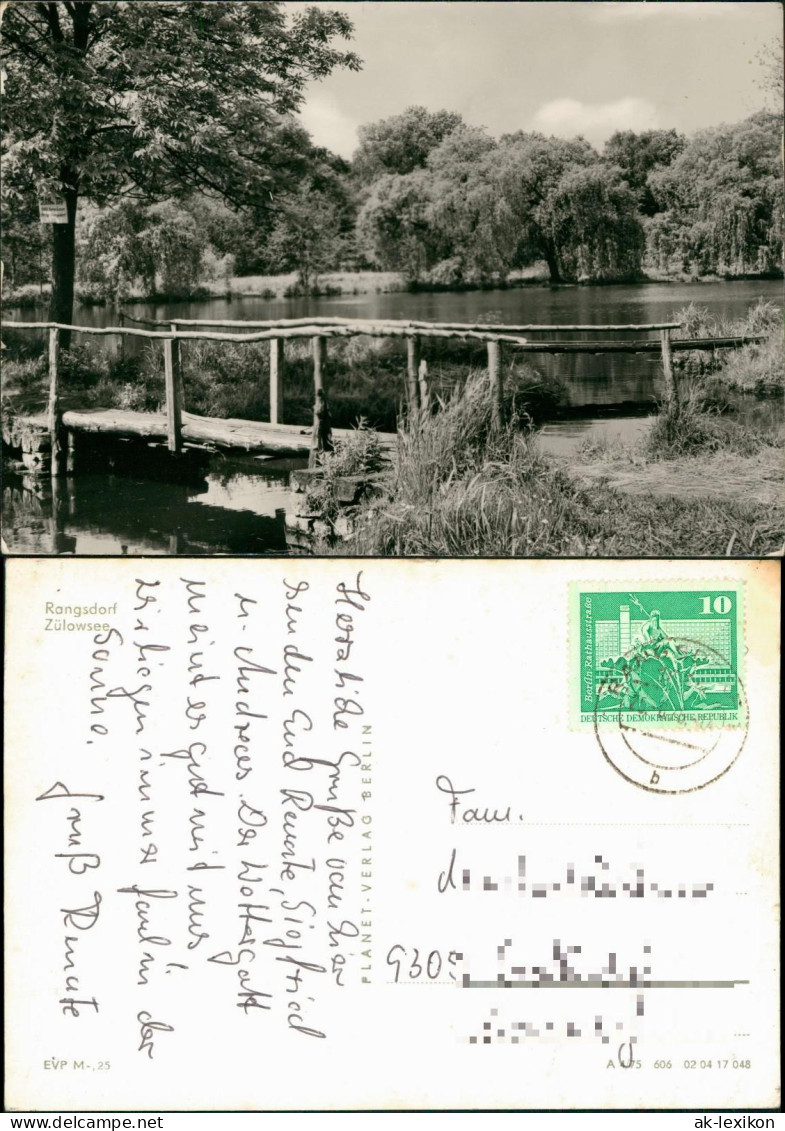 Rangsdorf
Zülowsee
Herzliche Grüße von hier
senden Euch Renate, Siegfried
u. Andreas. Der Wettergott
meint es gut mit uns
Wir liegen immer faul in der
Sonne.
Gruß Renate
PLANET-VERLAG BERLIN
Berlin-Rathausstraße
10
DEUTSCHE DEMOKRATISCHE REPUBLIK
b
Fam.
9305
EVP M -,25
A 4/75 606 02 04 17 048
ak-lexikon